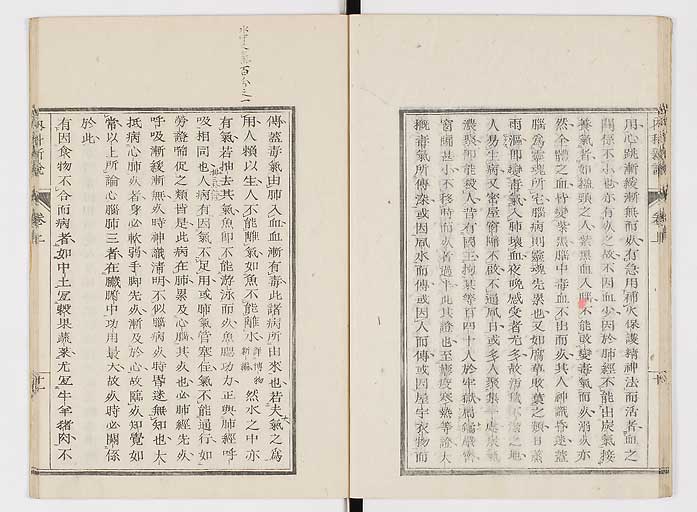 用心跳漸緩漸無而死有急用補火保護精神法而活者血之
關係不小也亦有死之故不因血少因於肺經不能出炭氣接
養氣者如縊頸之人紫黑血入腦不能改變毒氣而死溺死亦
然全體之血皆變紫黑腦中毒血不出而死其人神識昏迷蓋
腦為靈魂所宅腦病則靈魂先累也又如腐草敗葉之類日蒸
雨漚即變毒氣入肺壞血夜晚感受者尤多故
人易生病又常屋窗牖不啟不通風日或多人聚集一處炭氣
濃聚即能殺人昔有國王拘某等百四十人於牢獄
窗牖甚小不移時而死者過半此其證也至瘧疫寒熱等證大
概毒氣所傳染或因風水而傳或因人而傳或因屋宇衣物而
傳蓋毒氣由肺入血血漸有毒此諸病所由來也若夫氣之為
用人賴以生人不能離氣如魚不能離水詳博物新編然水之中亦
有氣若抽去其氣魚即不能游泳而死魚腮功力正與肺經呼
吸相同也人病有因氣不足用或肺氣管塞住氣不能通行如
勞證喘促之類皆是此病在肺累及心腦其死也必肺經先死
呼吸漸緩漸無死時神識清明不似腦病死時昏迷無知也大
抵病心肺死者身必軟弱手腳先死漸及於心故臨死知覺如
常以上所論心腦肺三者在臟腑中功用最大故死時必關係
於此
有因食物不合而病者如中土宜穀果蔬菜尤宜牛羊豬肉不
內科新說
卷上
十一